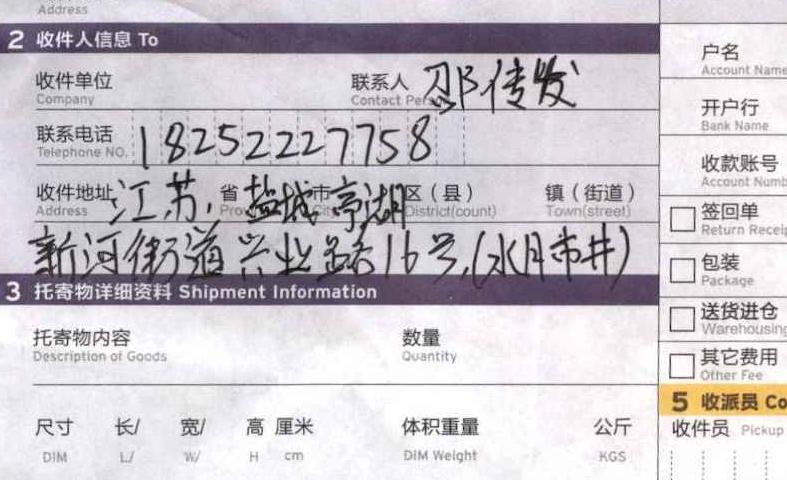 Address
2 收件人信息 To
收件单位 联系人 邵传发
Company Contact Person
联系电话 18252227758
Telephone NO.
收件地址 江苏 省 盐城 市 亭湖 区（县） 镇（街道）
Address Province City District(count) Town(street)
新河街道兴业路16号(水月市井)
3 托寄物详细资料 Shipment Information
托寄物内容 数量
Description of Goods Quantity
尺寸 长/ 宽/ 高 厘米 体积重量 公斤
DIM L/ W/ H cm DIM Weight KGS
户名
Account Name
开户行
Bank Name
收款账号
Account Numb
签回单
Return Receip
包装
Package
送货进仓
Warehousing
其它费用
Other Fee
5 收派员 Co
收件员 Pickup